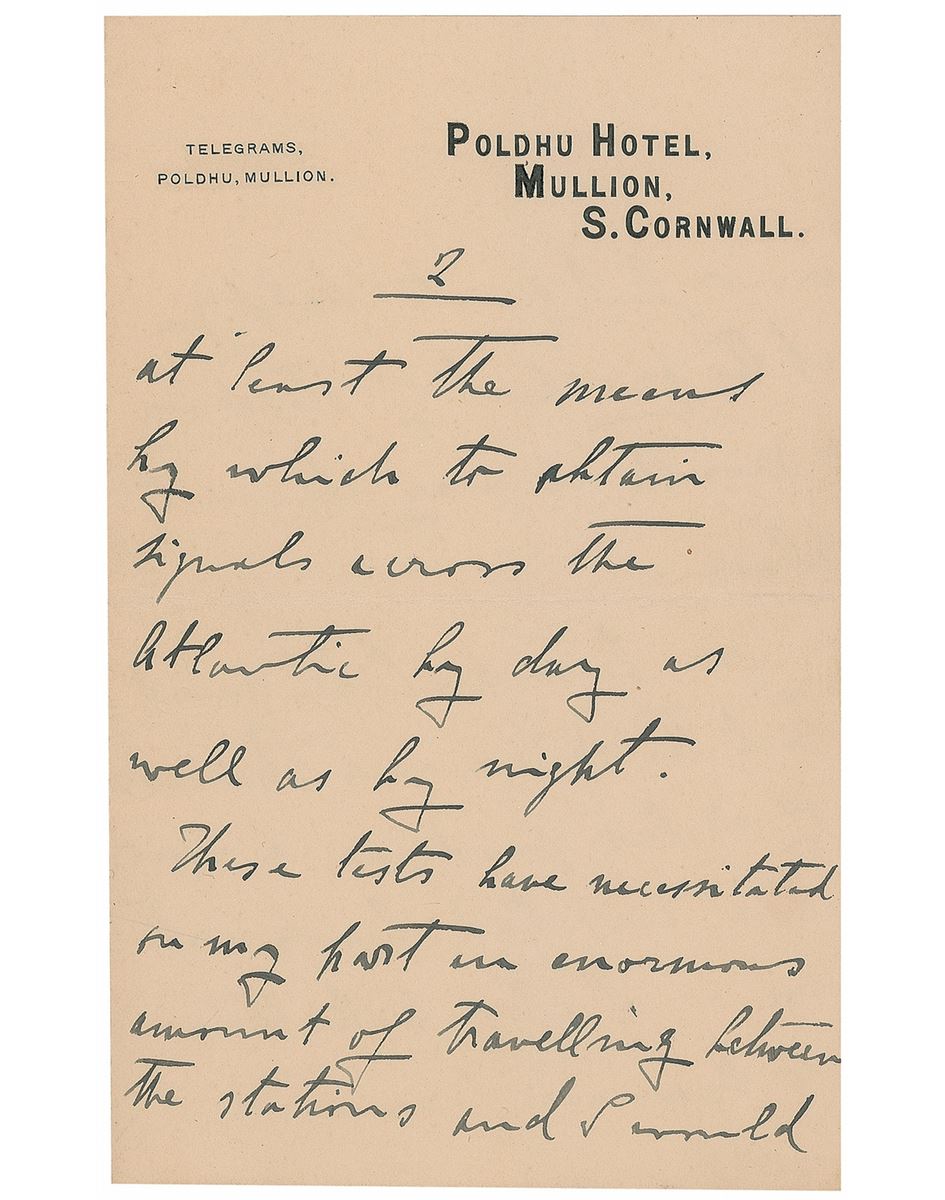 TELEGRAMS,
POLDHU, MULLION.
POLDHU HOTEL,
MULLION,
S. CORNWALL.
2
at least the means
by which to obtain
signals across the
Atlantic by day as
well as by night.
These tests have necessitated
on my part an enormous
amount of travelling between
the stations and I would